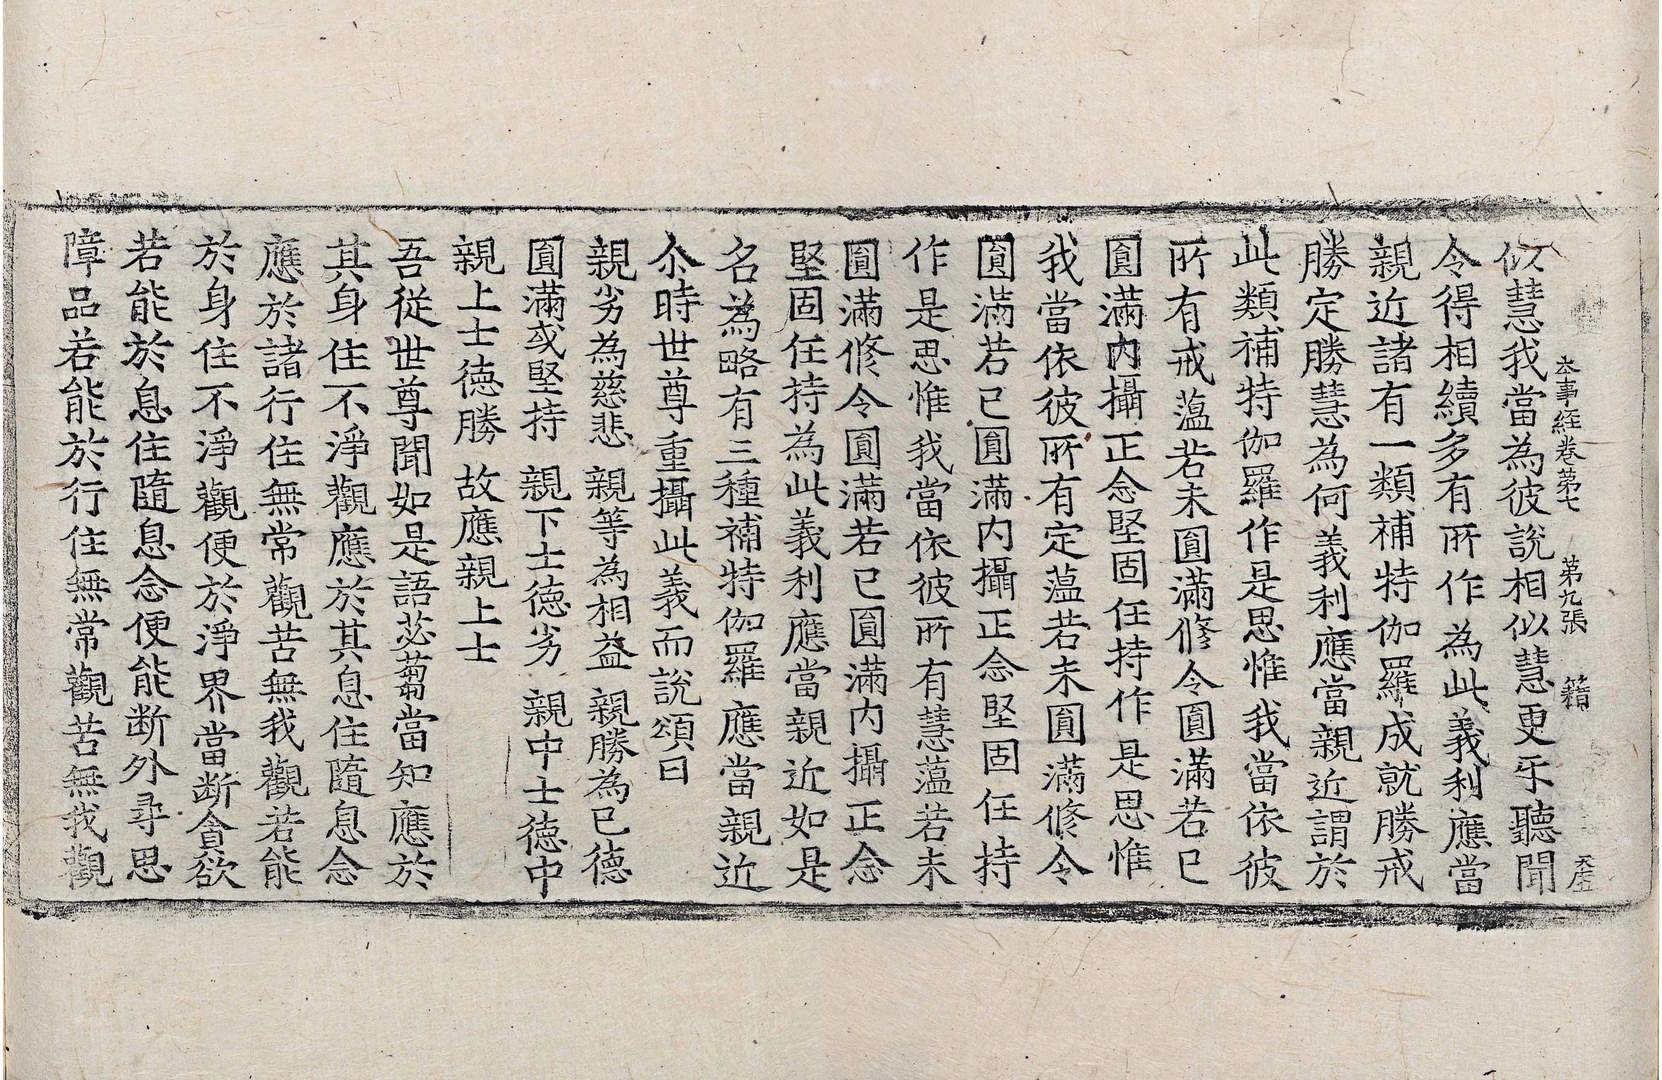 本事経卷第七 第九張 籍 天庄
似慧我當為彼說相似慧更乐聽聞
令得相續多有所作為此義利應當
親近諸有一類補特伽羅成就勝戒
勝定勝慧為何義利應當親近謂於
此類補特伽羅作是思惟我當依彼
所有戒薀若未圎滿修令圎滿若已
圎滿內攝正念堅固任持作是思惟
我當依彼所有定薀若未圎滿修令
圎滿若已圎滿內攝正念堅固任持
作是思惟我當依彼所有慧薀若未
圎滿修令圎滿若已圎滿內攝正念
堅固任持為此義利應當親近如是
名為略有三種補特伽羅應當親近
尒時世尊重攝此義而說頌曰
親劣為慈悲 親等為相益 親勝為已德
圎滿或堅持 親下士德劣 親中士德中
親上士德勝 故應親上士
吾從世尊聞如是語苾蒭當知應於
其身住不淨觀應於其息住隨息念
應於諸行住無常觀苦無我觀若能
於身住不淨觀便於淨界當断貪欲
若能於息住隨息念便能断外尋思
障品若能於行住無常觀苦無我觀